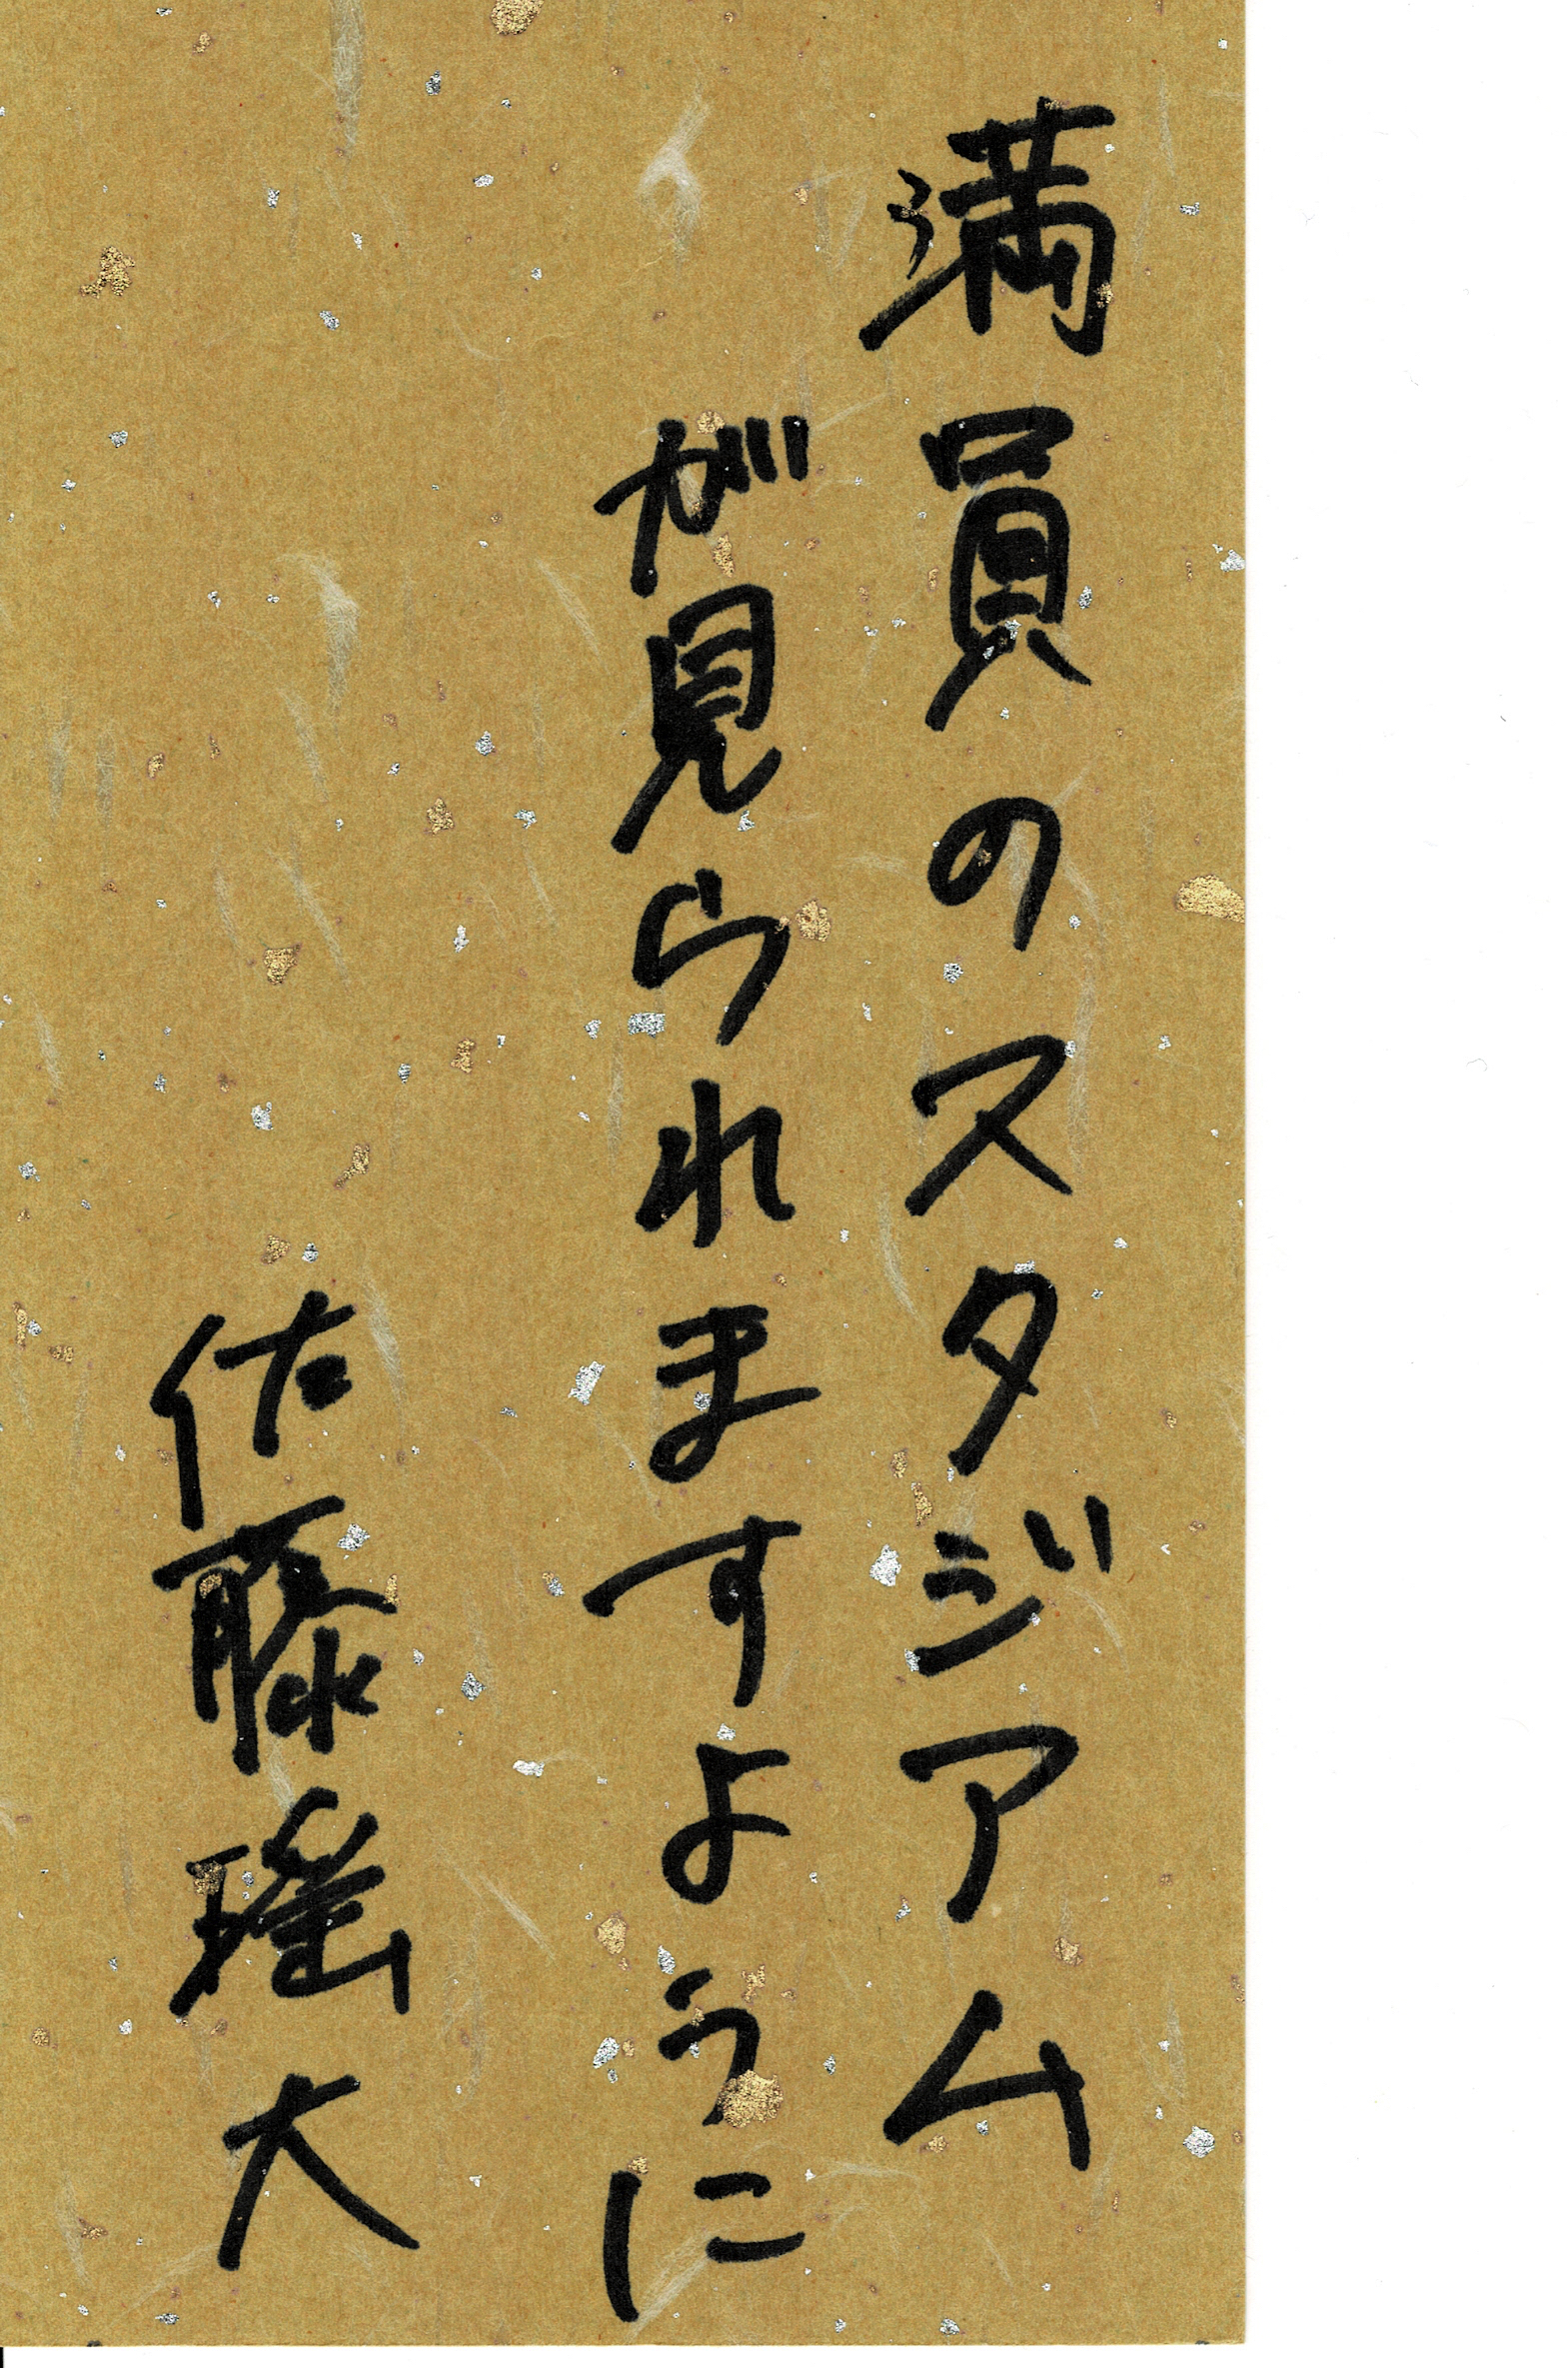 満員のスタジアム
が見られますように
佐藤瑶大